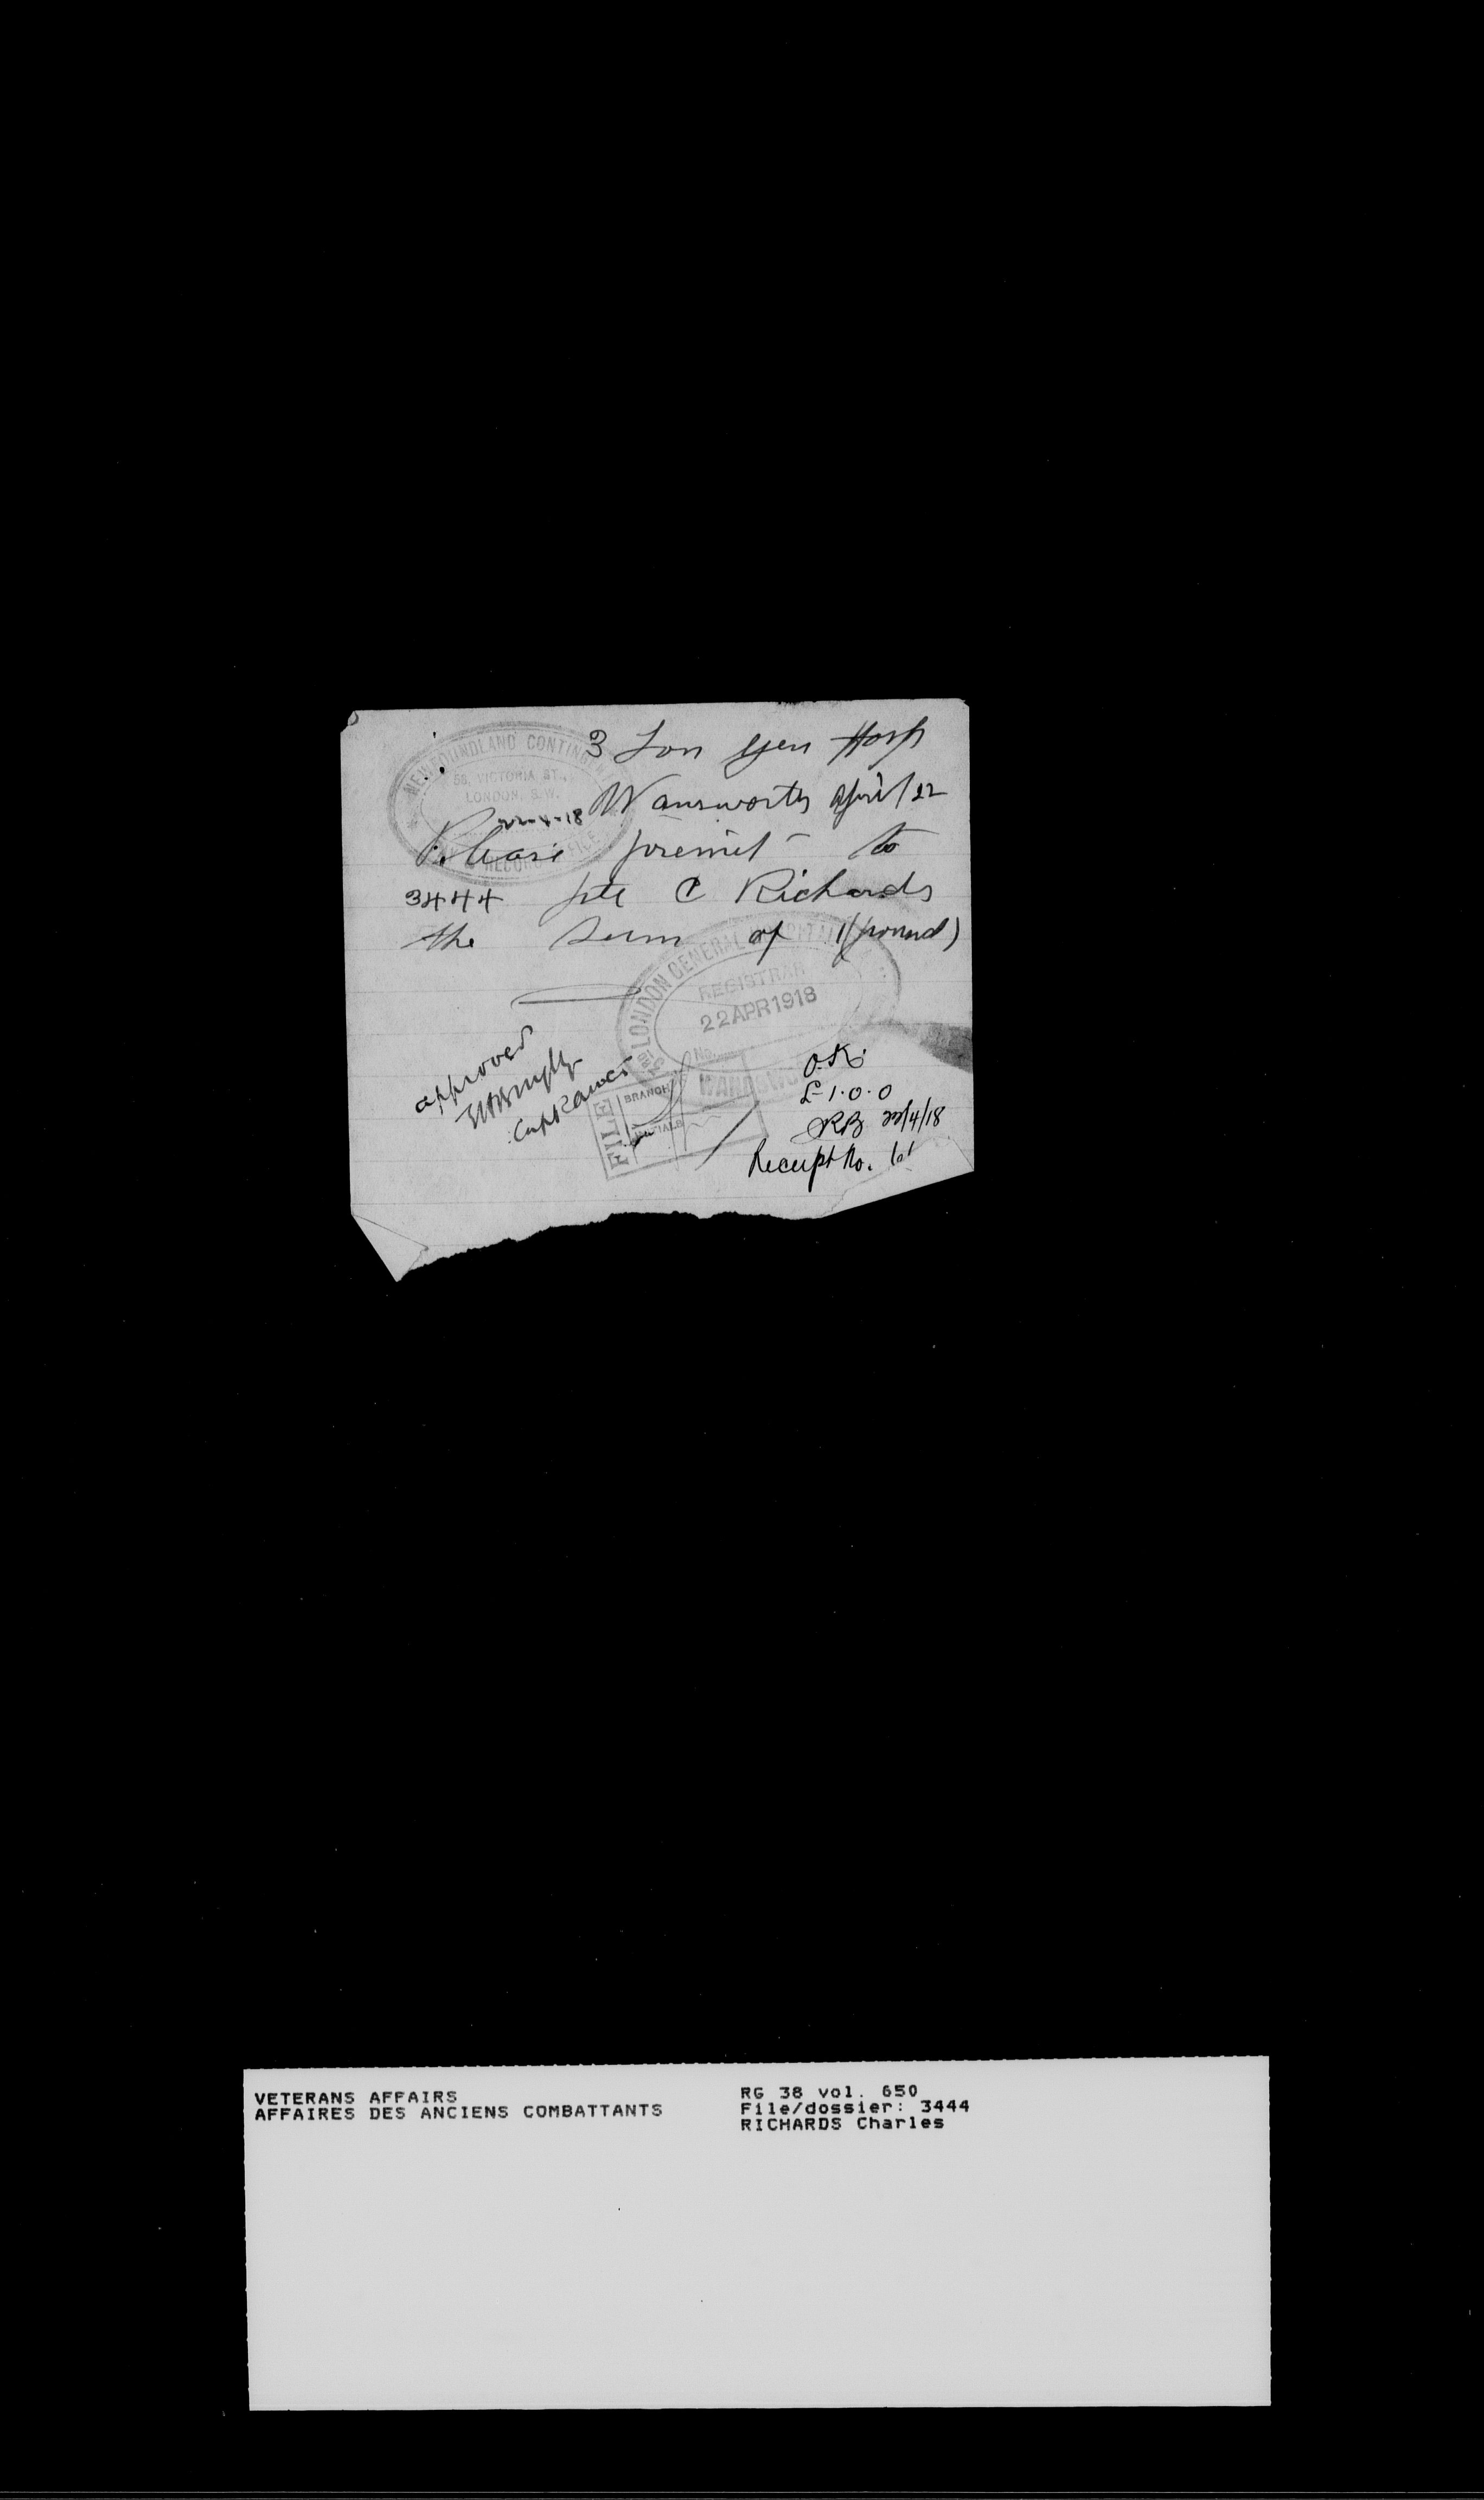 NEWFOUNDLAND CONTINGENT
58, VICTORIA ST.,
LONDON, S.W.
22-4-18
RECORD OFFICE
3 Lon Gen Hosp
Wansworth April / 22
Please premit to
3444 pte C Richards
the sum of 1 (pound)
3RD LONDON GENERAL HOSPITAL
REGISTRAR
22 APR 1918
No.
WANDSWORTH
approved
Capt RAMC
FILE
BRANCH
INITIALS
O.K.
£-1-0-0
RB 22/4/18
Receipt No. 61
VETERANS AFFAIRS
AFFAIRES DES ANCIENS COMBATTANTS
RG 38 vol. 650
File/dossier: 3444
RICHARDS Charles